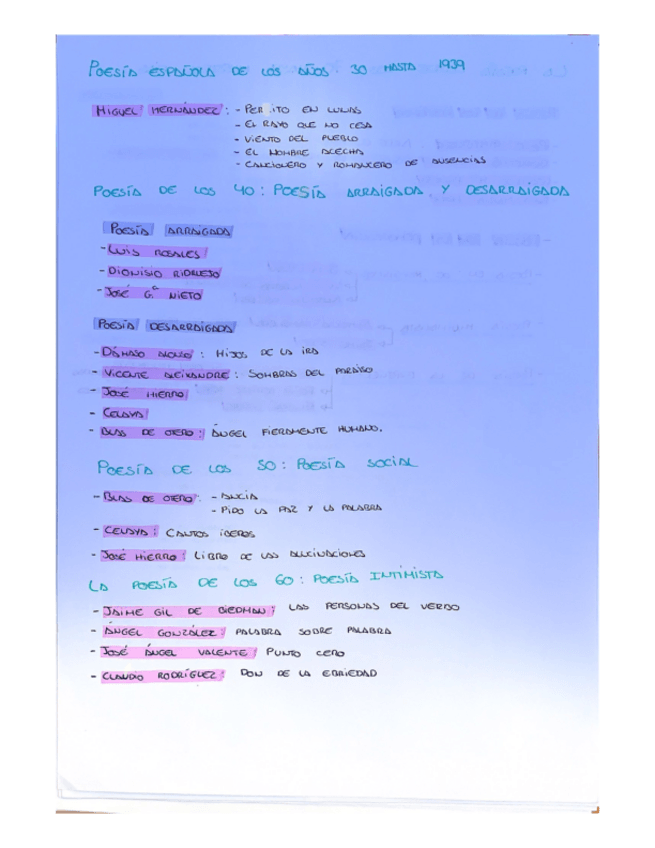 POESÍA ESPAÑOLA DE LOS AÑOS 30 HASTA 1939
MIGUEL HERNÁNDEZ: - PERITO EN LUNAS
- EL RAYO QUE NO CESA
- VIENTO DEL PUEBLO
- EL HOMBRE ACECHA
- CANCIONERO Y ROMANCERO DE AUSENCIAS
POESÍA DE LOS 40: POESÍA ARRAIGADA Y DESARRAIGADA
POESÍA ARRAIGADA
- LUIS ROSALES
- DIONISIO RIDRUEJO
- JOSÉ Gª NIETO
POESÍA DESARRAIGADA
- DÁMASO ALONSO: HIJOS DE LA IRA
- VICENTE ALEIXANDRE: SOMBRAS DEL PARAÍSO
- JOSÉ HIERRO
- CELAYA
- BLAS DE OTERO: ÁNGEL FIERAMENTE HUMANO.
POESÍA DE LOS 50: POESÍA SOCIAL
- BLAS DE OTERO: - ANCIA
- PIDO LA PAZ Y LA PALABRA
- CELAYA: CANTOS ÍBEROS
- JOSÉ HIERRO: LIBRO DE LAS ALUCINACIONES
LA POESÍA DE LOS 60: POESÍA INTIMISTA
- JAIME GIL DE BIEDMAN: LAS PERSONAS DEL VERBO
- ÁNGEL GONZÁLEZ: PALABRA SOBRE PALABRA
- JOSÉ ÁNGEL VALENTE: PUNTO CERO
- CLAUDIO RODRÍGUEZ: DON DE LA EBRIEDAD